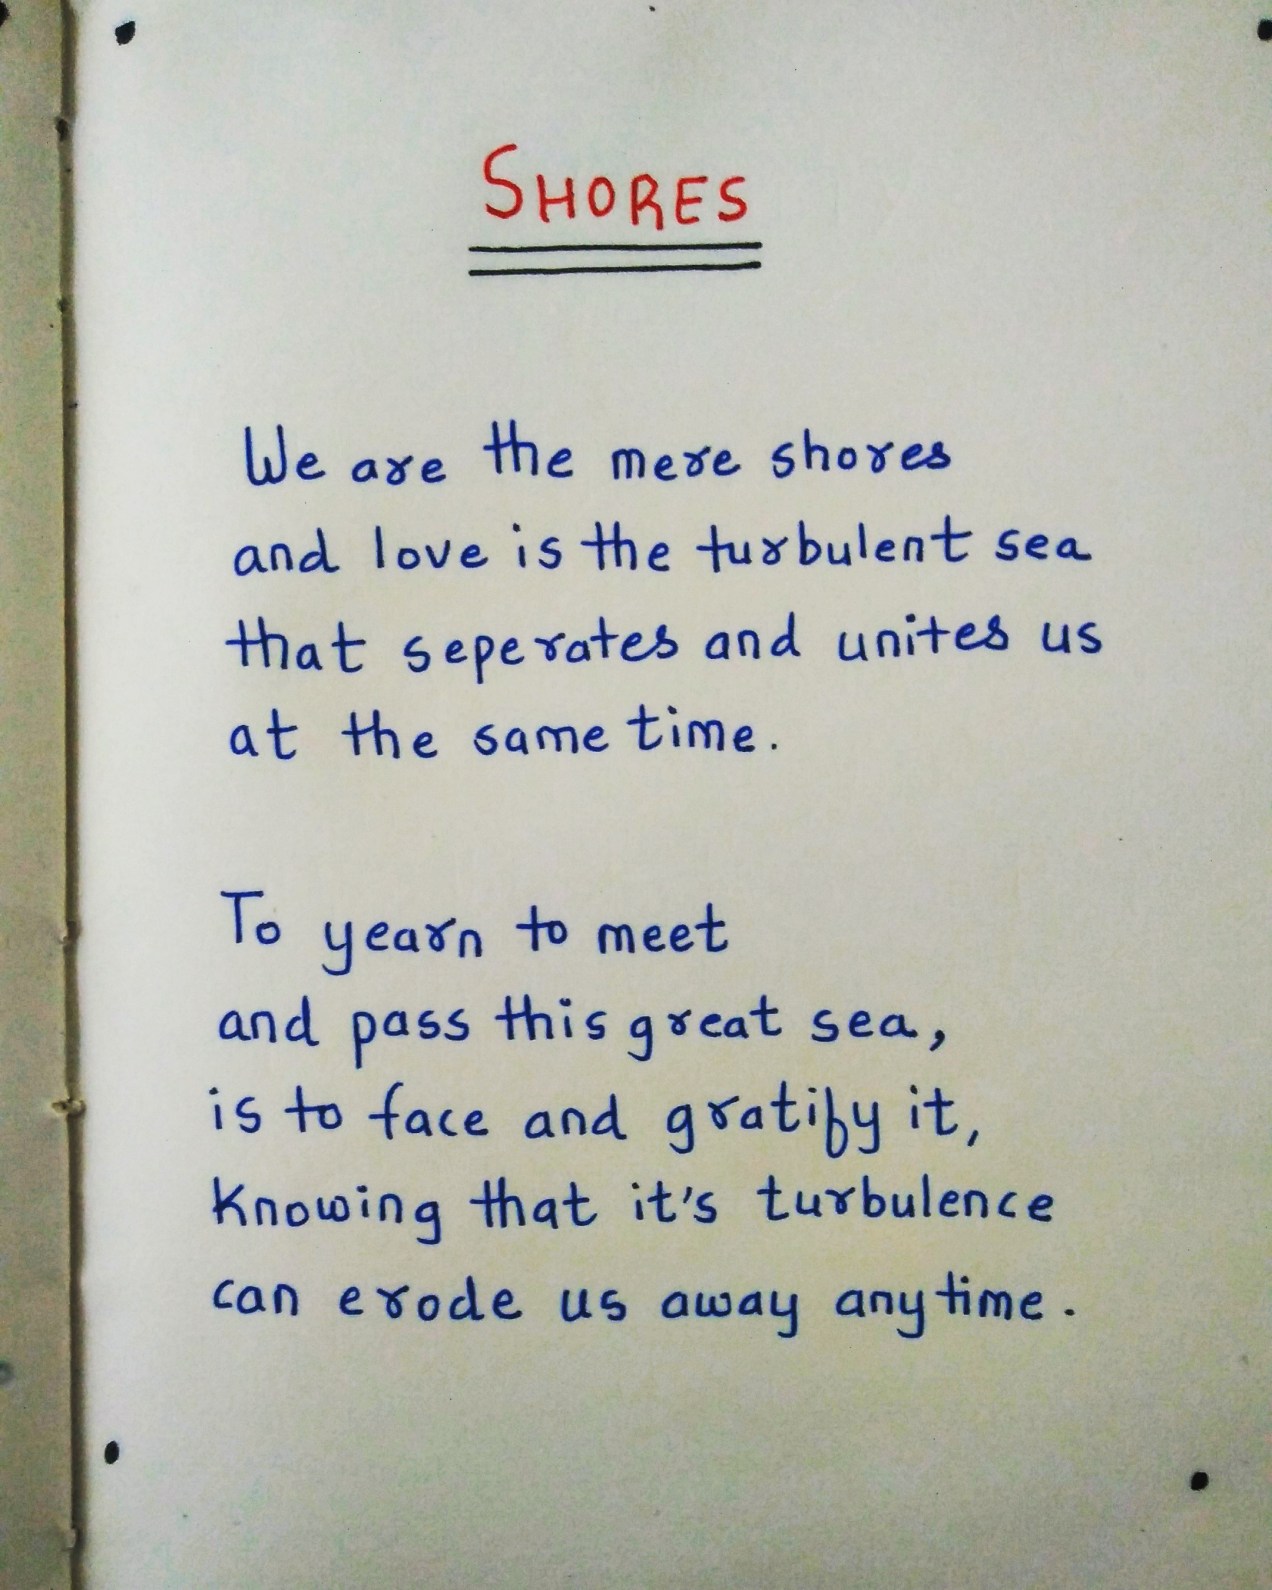 SHORES
We are the mere shores
and love is the turbulent sea
that seperates and unites us
at the same time.
To yearn to meet
and pass this great sea,
is to face and gratify it,
knowing that it's turbulence
can erode us away anytime.